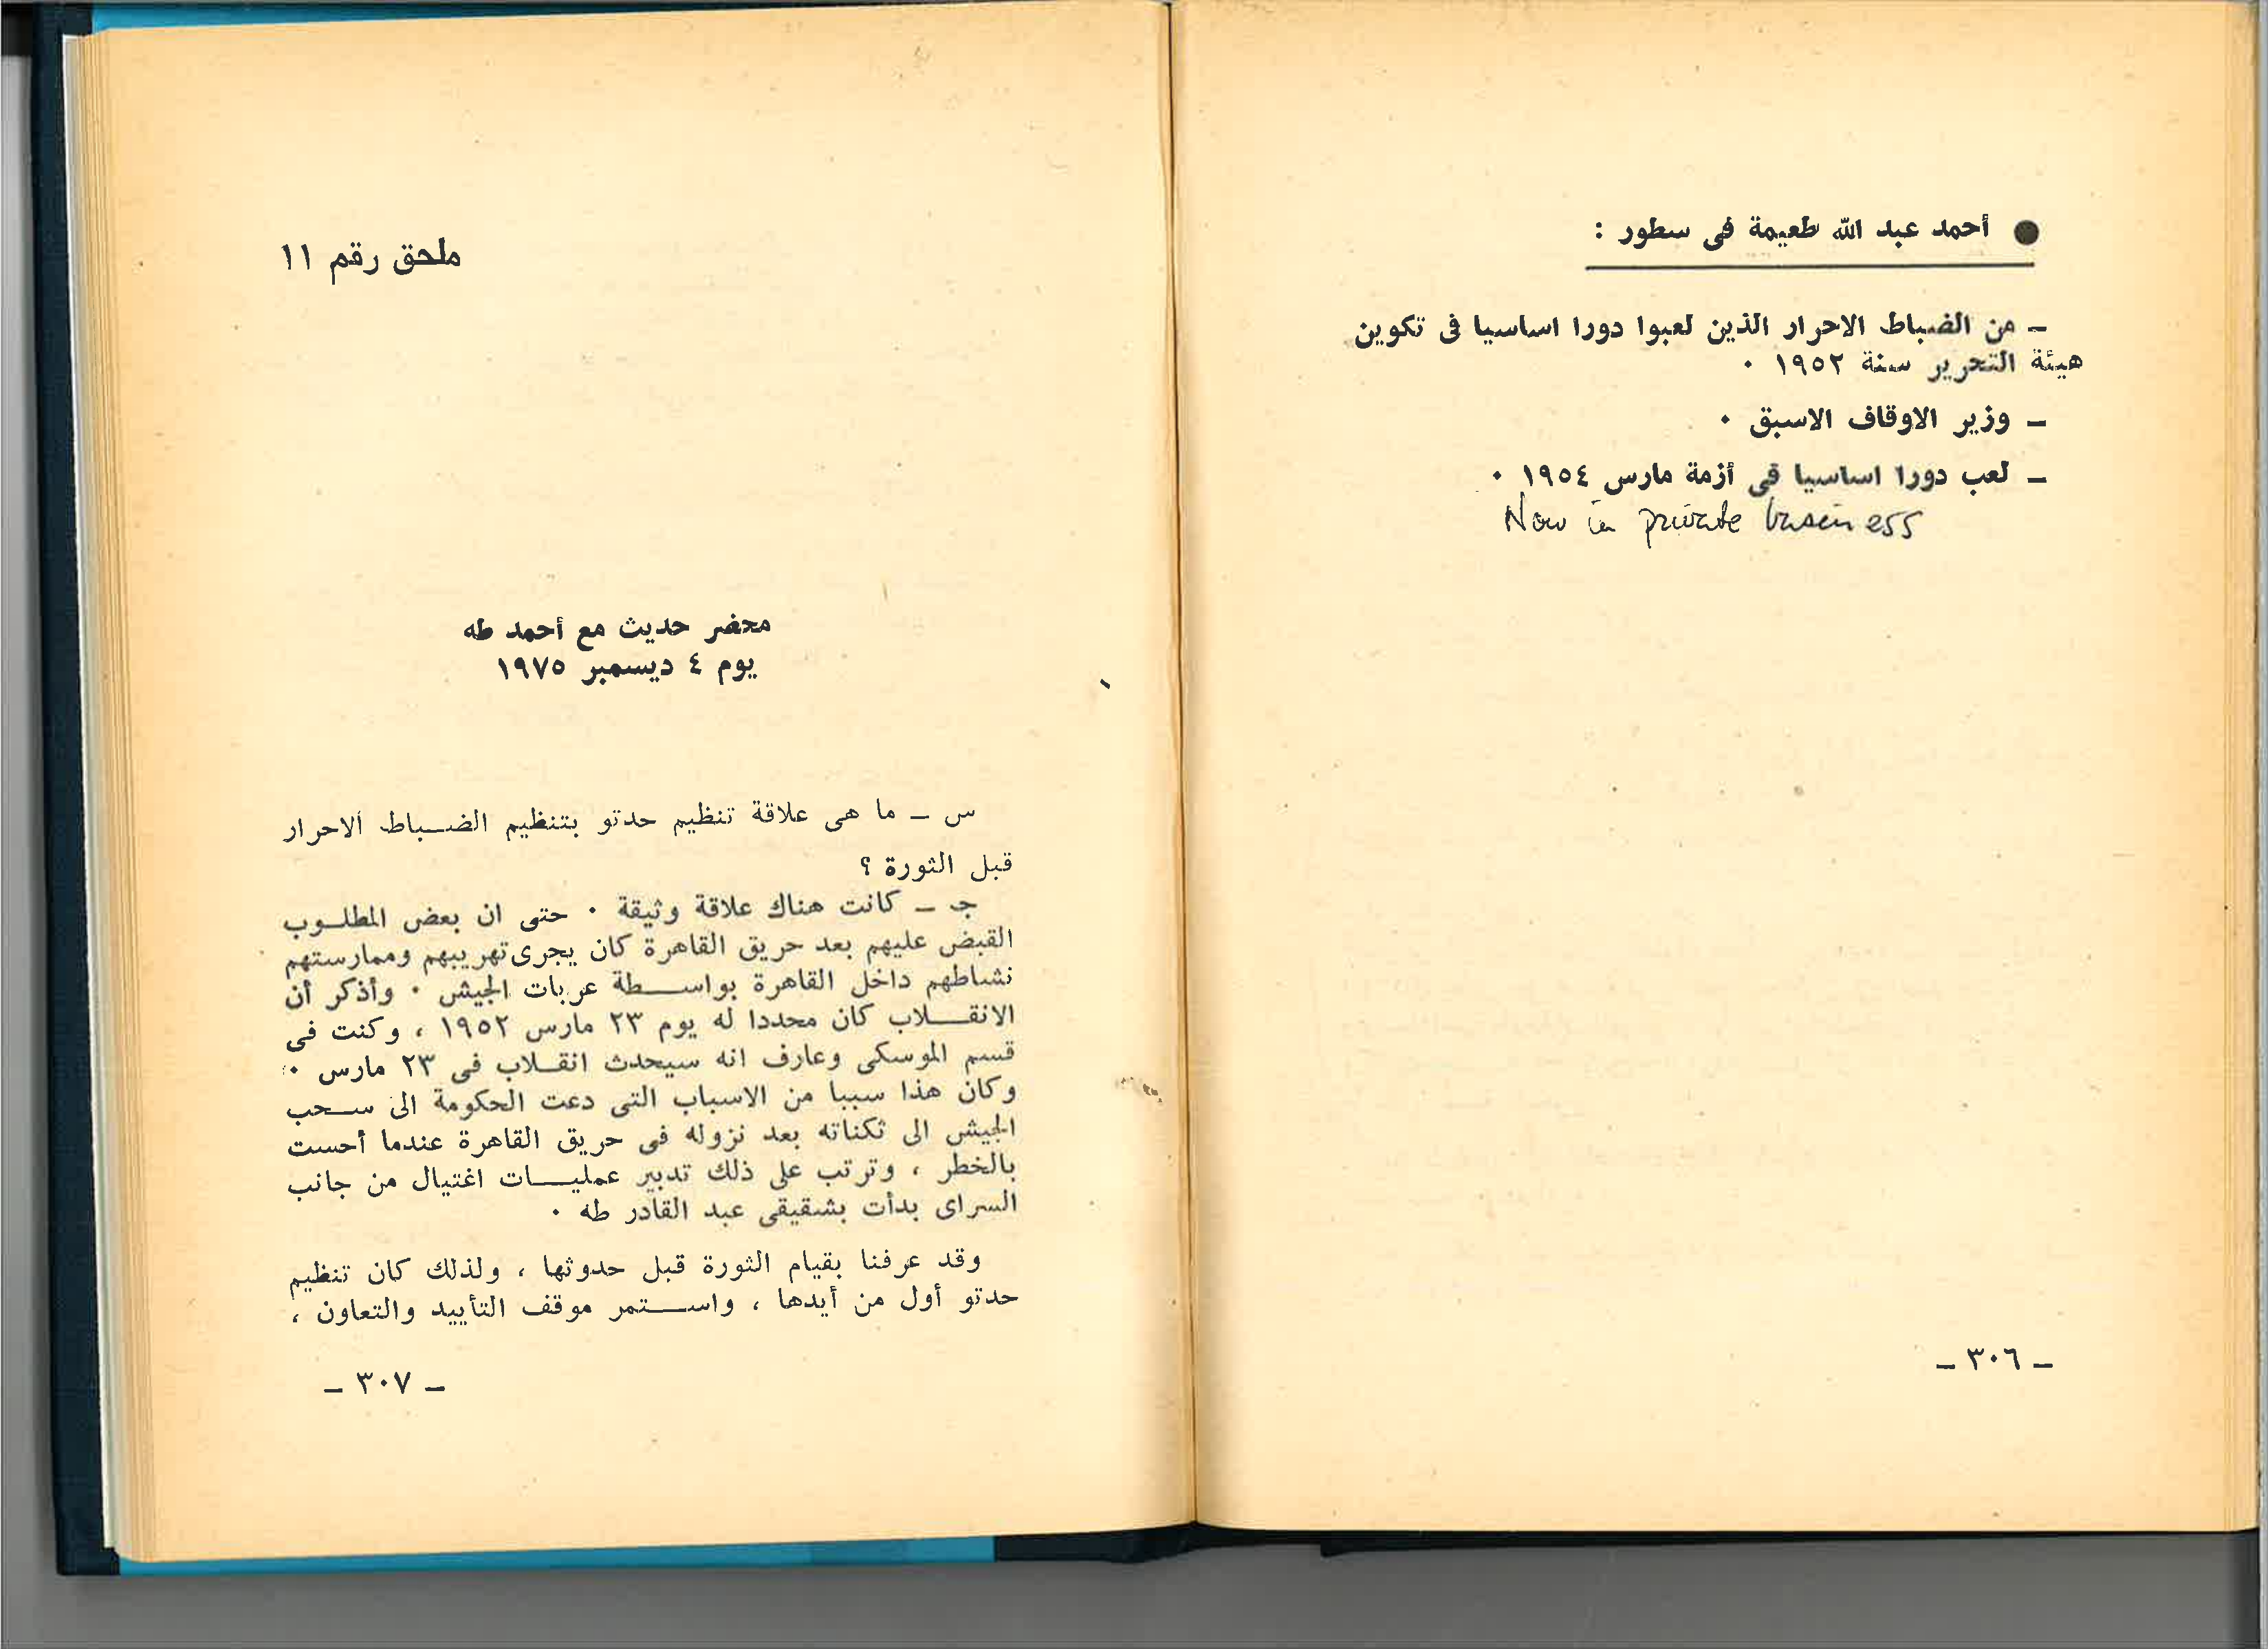 ● أحمد عبد الله طعيمة فى سطور :
ـ من الضباط الاحرار الذين لعبوا دورا اساسيا فى تكوين
هيئة التحرير سنة ١٩٥٢ ٠
ـ وزير الاوقاف الاسبق ٠
ـ لعب دورا اساسيا فى أزمة مارس ١٩٥٤ ٠
Now in private business
ـ ٣٠٦ ـ
ملحق رقم ١١
محضر حديث مع أحمد طه
يوم ٤ ديسمبر ١٩٧٥
س ـ ما هى علاقة تنظيم حدتو بتنظيم الضـــباط الاحرار
قبل الثورة ؟
جـ ـ كانت هناك علاقة وثيقة ٠ حتى ان بعض المطلــوب
القبض عليهم بعد حريق القاهرة كان يجرى تهريبهم وممارستهم
نشاطهم داخل القاهرة بواســـطة عربات الجيش ٠ وأذكر أن
الانقـــلاب كان محددا له يوم ٢٣ مارس ١٩٥٢ ، وكنت فى
قسم الموسكى وعارف انه سيحدث انقــلاب فى ٢٣ مارس ٠
وكان هذا سببا من الاسباب التى دعت الحكومة الى ســحب
الجيش الى ثكناته بعد نزوله فى حريق القاهرة عندما أحست
بالخطر ، وترتب على ذلك تدبير عمليـــات اغتيال من جانب
السراى بدأت بشقيقى عبد القادر طه ٠
وقد عرفنا بقيام الثورة قبل حدوثها ، ولذلك كان تنظيم
حدتو أول من أيدها ، واســـتمر موقف التأييد والتعاون ،
ـ ٣٠٧ ـ